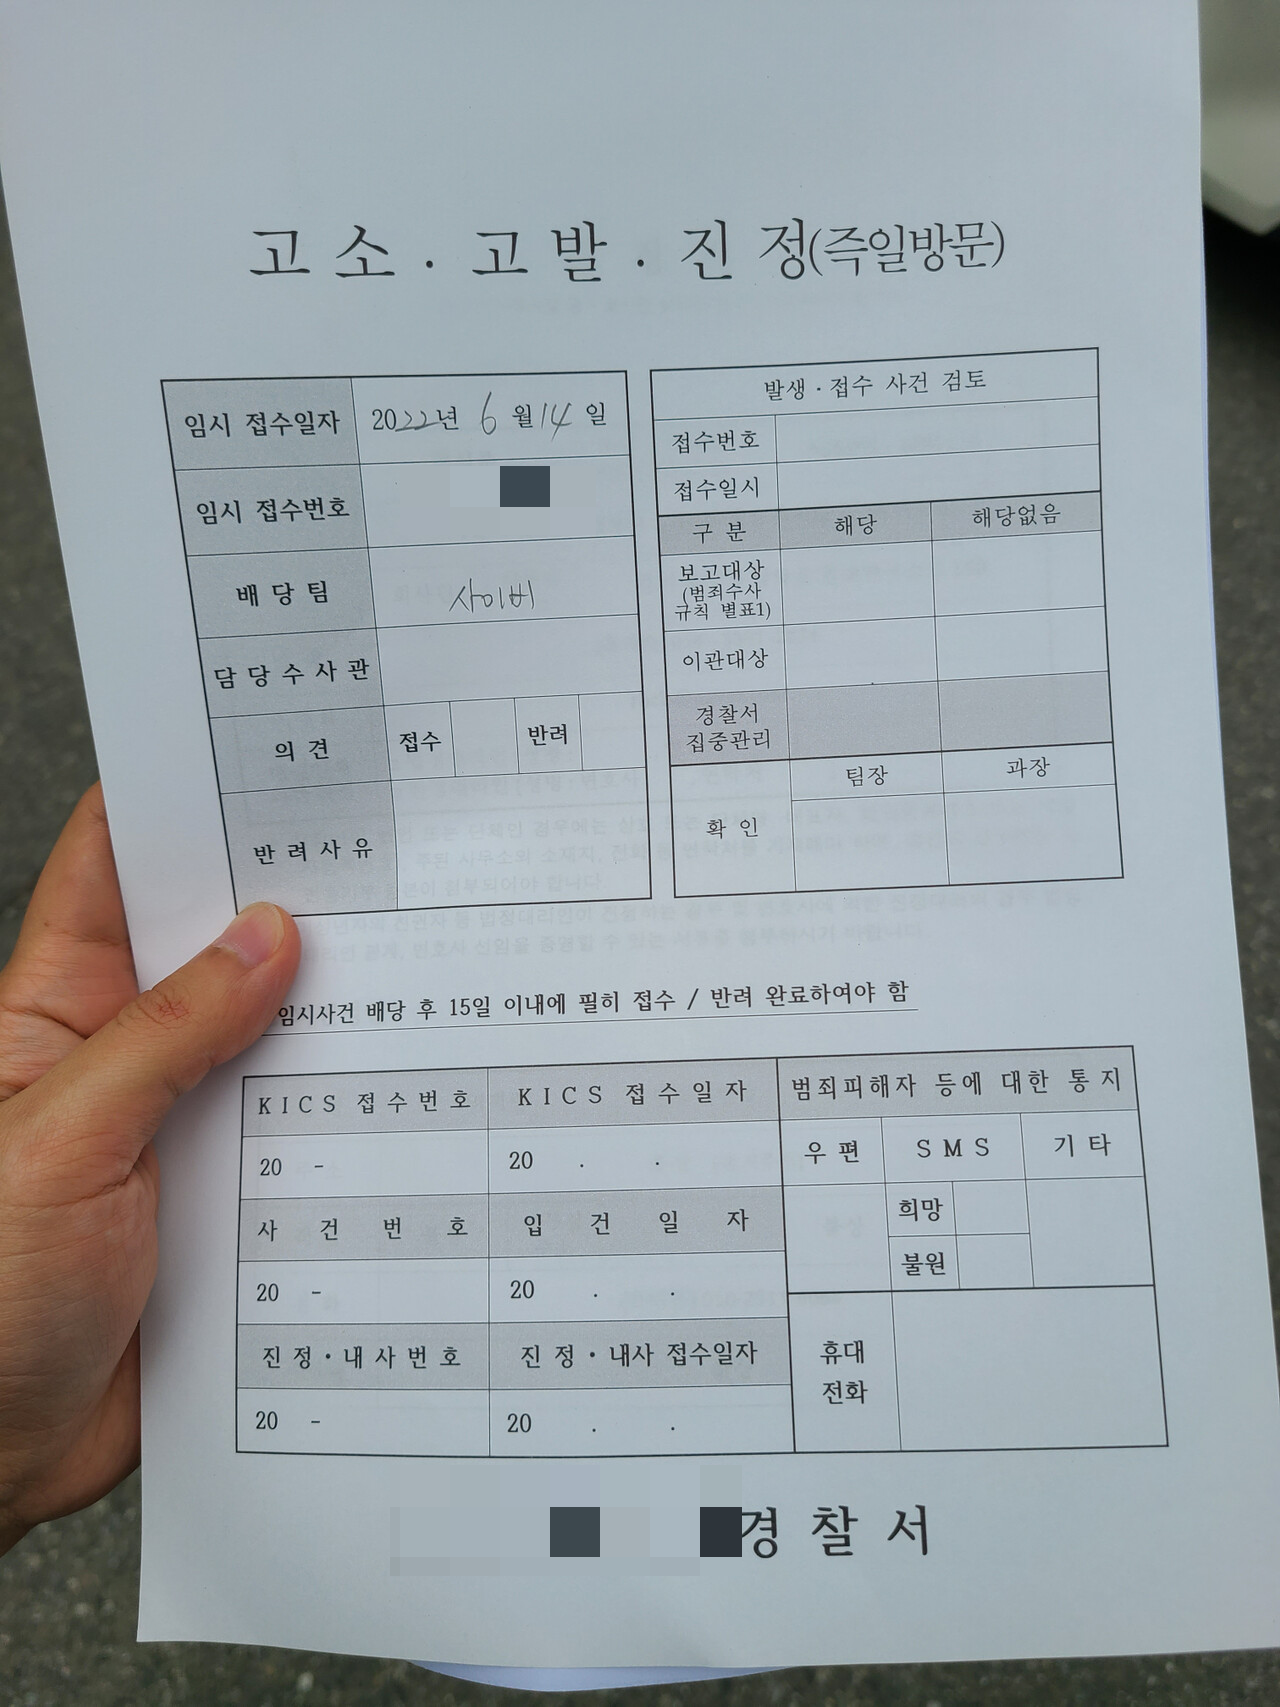 고소·고발·진정(즉일방문)
임시 접수일자 2022년 6월 14일
임시 접수번호
배당팀 사이버
담당수사관
의견 접수 반려
반려사유
발생·접수 사건 검토
접수번호
접수일시
구분 해당 해당없음
보고대상
(범죄수사
규칙 별표1)
이관대상
경찰서
집중관리
확인 팀장 과장
임시사건 배당 후 15일 이내에 필히 접수 / 반려 완료하여야 함
KICS 접수번호 KICS 접수일자
20 - 20 . .
사건번호 입건일자
20 - 20 . .
진정·내사번호 진정·내사 접수일자
20 - 20 . .
범죄피해자 등에 대한 통지
우편 SMS 기타
희망
불원
휴대
전화
경찰서